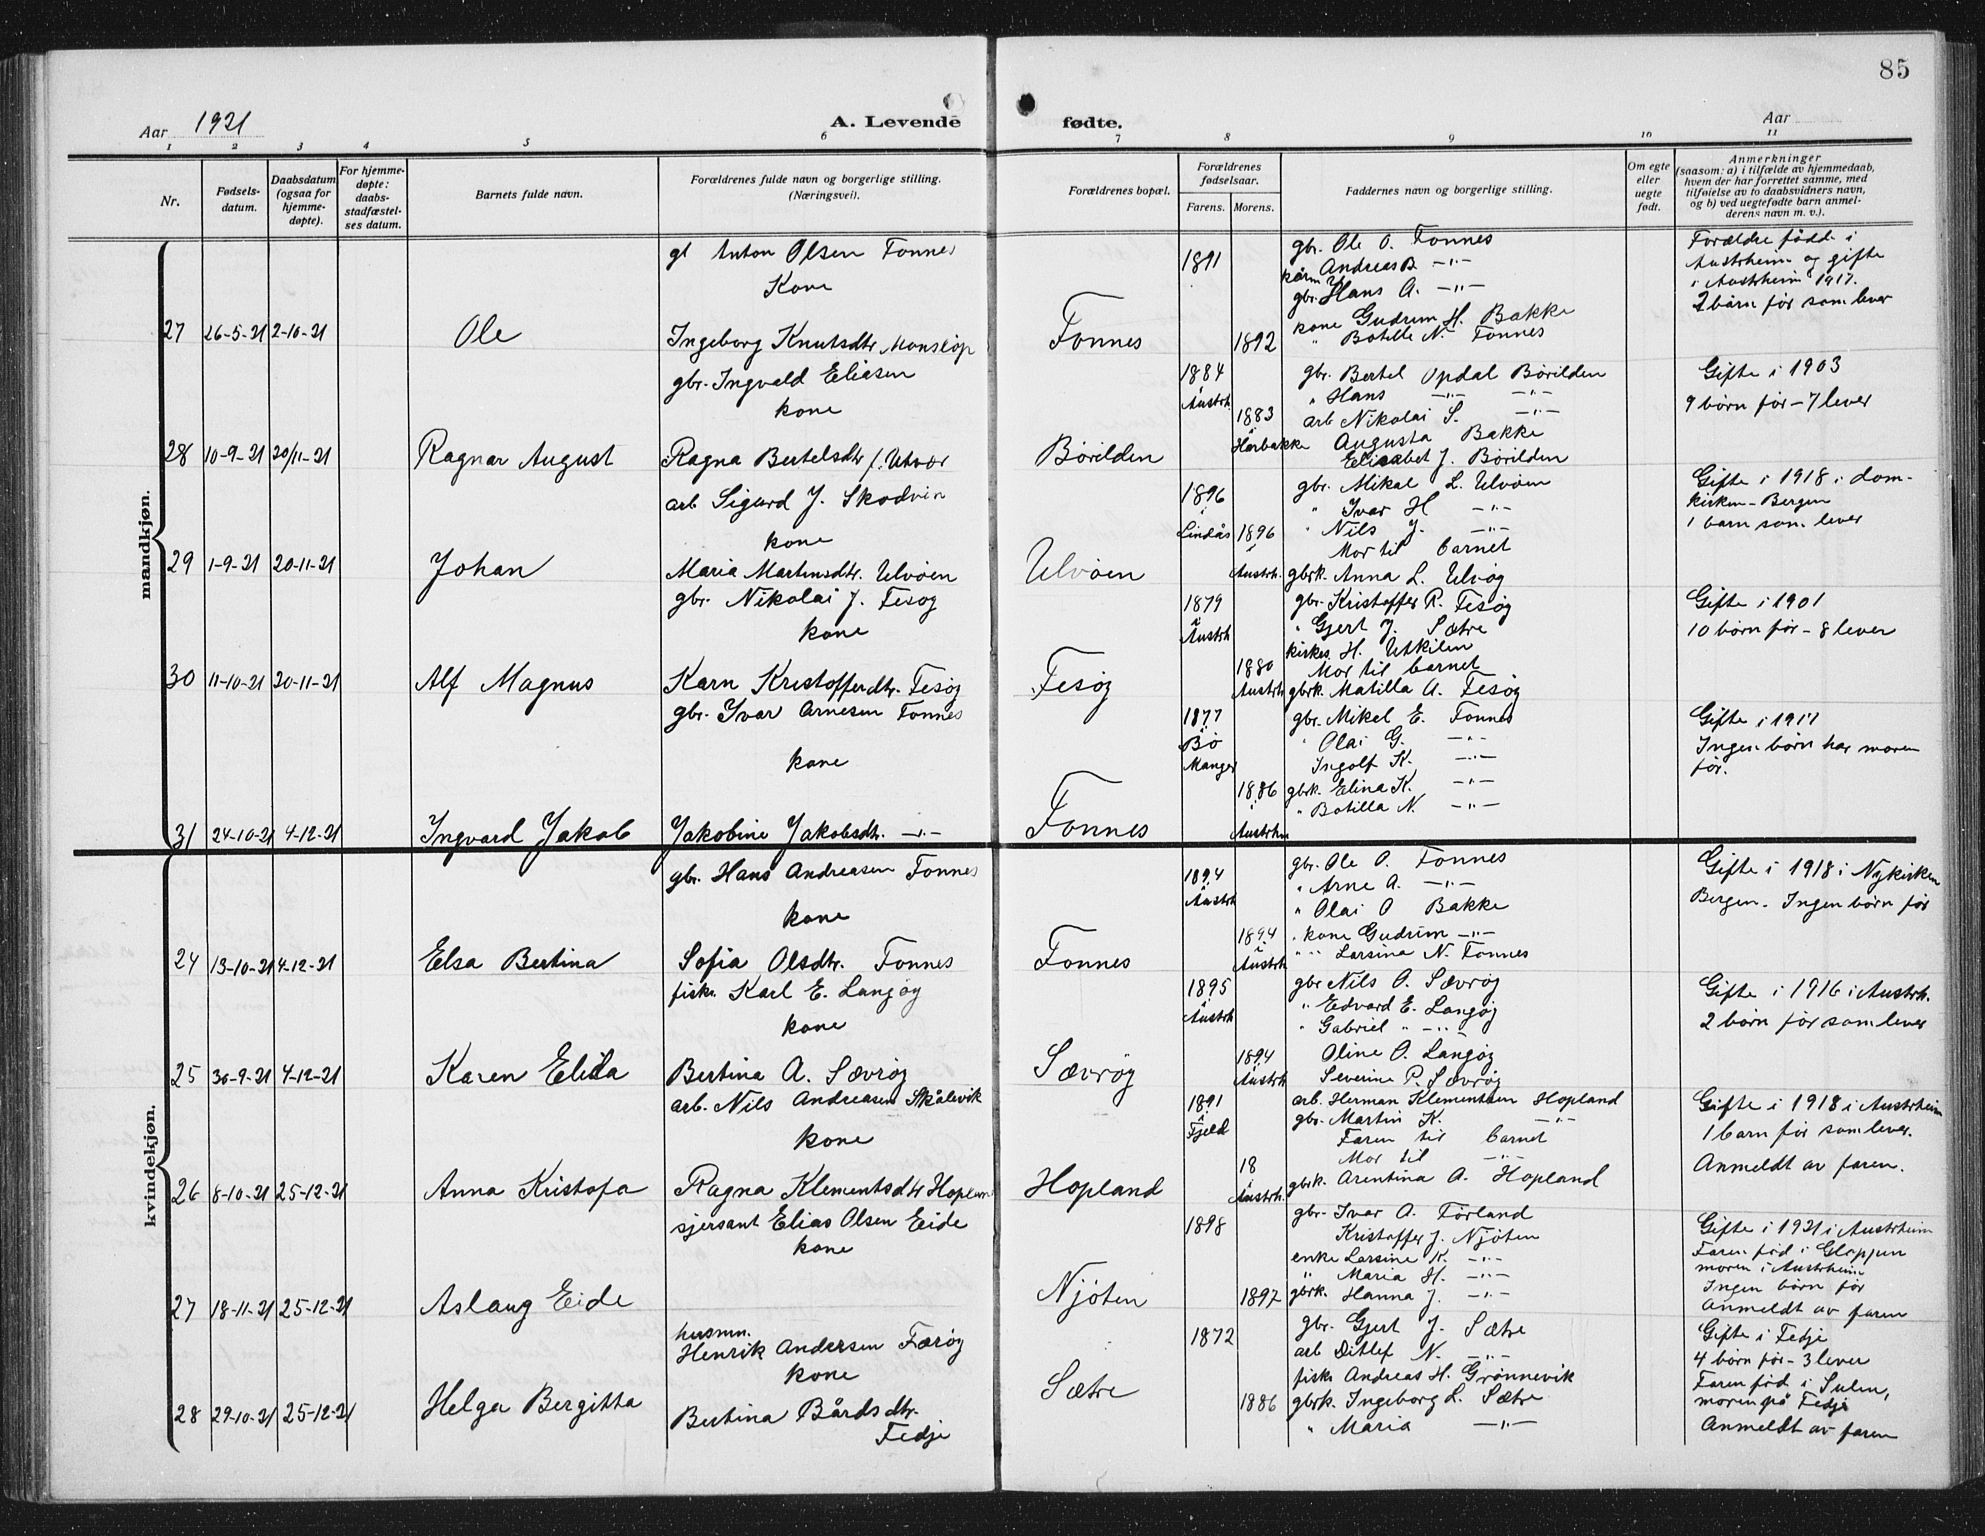 85
Aar 1921
A. Levende fødte.
Aar
1 2 3 4 5 6 7 8 9 10 11
Nr.
Fødsels-
datum.
Daabsdatum
(ogsaa for
hjemme-
døpte).
For hjemme-
døpte:
daabs-
stadfæstel-
ses datum.
Barnets fulde navn.
Forældrenes fulde navn og borgerlige stilling.
(Næringsvei).
Forældrenes bopæl.
Forældrenes
fødselsaar.
Farens. Morens.
Faddernes navn og borgerlige stilling.
Om egte
eller
uegte
født.
Anmerkninger
(saasom: a) i tilfælde av hjemmedaab,
hvem der har forrettet samme, med
tilføielse av to daabsvidners navn,
og b) ved uegtefødte barn anmel-
derens navn m. v.).
mandkjøn.
27 26-5-21 2-10-21 Ole
gb Anton Olsen Fonnes
Kone
Ingeborg Knutsdtr Monsløp
Fonnes
1891
1892
gbr. Ole O. Fonnes
Andreas B -"-
gbr. Hans A. -"-
kone Gudrun H. Bakke
" Botille N. Fonnes
Forældre fødde i
Austrheim og gifte
i Austrheim 1917.
2 børn før som lever
28 10-9-21 20/11-21 Ragnar August
gbr. Ingvald Eliasen
kone
Ragna Bertelsdtr f. Utvær
Børilden
1884
i
Austrh.
1883
i
Hørbakke
gbr. Bertel Opdal Børilden
" Hans -"- -"-
arb Nikolai S. -"-
Augusta Bakke
Elisabet J. Børilden
Gifte i 1903
9 børn før - 7 lever
29 1-9-21 20-11-21 Johan
arb Sigurd J. Skodvin
kone
Maria Martinsdtr. Ulvøen
Ulvøen
1896
i
Lindås
1896
i
Austrh.
gbr. Mikal L. Ulvøen
" Ivar H -"-
" Nils J. -"-
Mor til barnet
gbrk. Anna L. Ulvøy
Gifte i 1918 i dom-
kirken - Bergen
1 barn som lever
30 11-10-21 20-11-21 Alf Magnus
gbr. Nikolai J. Fesøy
kone
Karn Kristofferdtr. Fesøy
Fesøy
1879
i
Austrh
1880
Austrh
gbr. Kristoffer R. Fesøy
" Gjert J. Sætre
kirkes. H. Utkilen
Mor til barnet
gbrk. Matilla A. Fesøy
Gifte i 1901
10 børn før - 8 lever
31 24-10-21 4-12-21 Ingvard Jakob
gbr. Ivar Arnesen Fonnes
kone
Jakobine Jakobsdtr. -"-
Fonnes
1877
i
Bø
Manger
1886
i
Austrhm
gbr. Mikel E. Fonnes
" Olai G. -"-
Ingolf K. -"-
gbrk. Elina K. -"-
" Botilla N. -"-
Gifte i 1917
Ingen børn har moren
før.
kvindekjøn.
24 13-10-21 4-12-21 Elsa Bertina
gbr. Hans Andreasen Fonnes
kone
Sofia Olsdtr. Fonnes
Fonnes
1894
i
Austrh
1894
i
Austrh
gbr. Ole O. Fonnes
" Arne A. -"-
" Olai O Bakke
" kone Gudrun -"-
" " Larsina N. Fonnes
Gifte i 1918 i Nykirken
Bergen. Ingen børn før
25 30-9-21 4-12-21 Karen Elida
fisk. Karl E. Langøy
kone
Bertina A. Sævrøy
Sævrøy
1895
i
Austrh
1894
i
Austrh
gbr Nils O. Sævrøy
" Edvard E. Langøy
" Gabriel " -"-
Oline O. Langøy
Severine P. Sævrøy
Gifte i 1916 i Austrh.
2 børn før som lever
26 8-10-21 25-12-21 Anna Kristofa
arb. Nils Andreasen Skålevik
kone
Ragna Klementsdtr Hopland
Hopland
1891
i
Fjeld
18
i
Austrh.
arb. Herman Klementsen Hopland
gbr. Martin K. -"-
Faren til barnet
Mor til -"-
gbrk. Arentina A. Hopland
Gifte i 1918 i Austrheim
1 barn før som lever.
Anmeldt av faren.
27 18-11-21 25-12-21 Aslaug Eide
sjersant Elias Olsen Eide
kone
Njøten
1898
1897
gbr. Ivar A. Førland
Kristoffer J. Njøten
enke Larsine K. -"-
" Maria H. -"-
gbrk. Hanna J. -"-
Gifte i 1921 i Austrheim
Faren fød i Gloppen
moren i Austrheim
Ingen børn før
Anmeldt av faren
28 29-10-21 25-12-21 Helga Bergitta
husmn.
Henrik Andersen Færøy
kone
Bertina Bårdsdtr.
Fedje
Sætre
1872
1886
gbr. Gjert J. Sætre
arb Ditlef N. -"-
fisk. Andreas H. Grønnevik
gbrk. Ingeborg L. Sætre
" Maria -"-
Gifte i Fedje
4 børn før - 3 lever
Faren fød i Sulen,
moren på Fedje
Anmeldt av faren